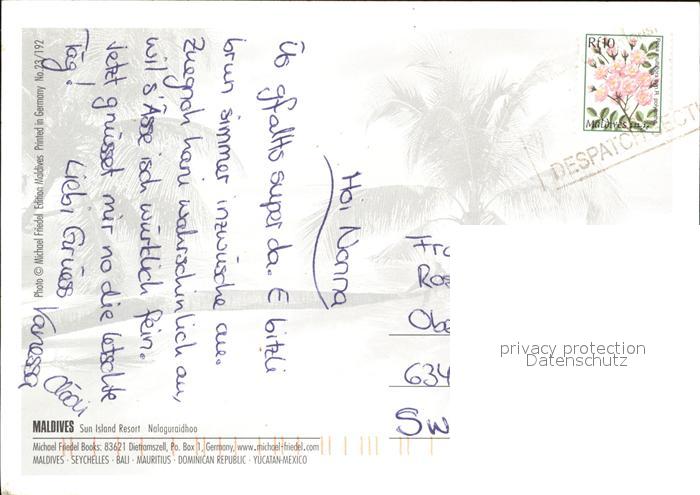 Hoi Nonna
Üs gfallts super da. E bitzli
brun simmer inzwüsche au.
Zuegnoh hani wahrschinlich au,
wil s Ässe isch würklich fein.
Jetzt gnüsset mir no die letschte
Täg!
Liebi Grüess Vanessa
Rf10
Maldives
DESPATCH SECT
Ros
Obe
634
Sw
privacy protection
Datenschutz
Photo © Michael Friedel Edition Maldives Printed in Germany No.23/192
MALDIVES Sun Island Resort Nalaguraidhoo
Michael Friedel Books: 83621 Dietramszell, Po. Box 1, Germany, www.michael-friedel.com
MALDIVES · SEYCHELLES · BALI · MAURITIUS · DOMINICAN REPUBLIC · YUCATAN-MEXICO